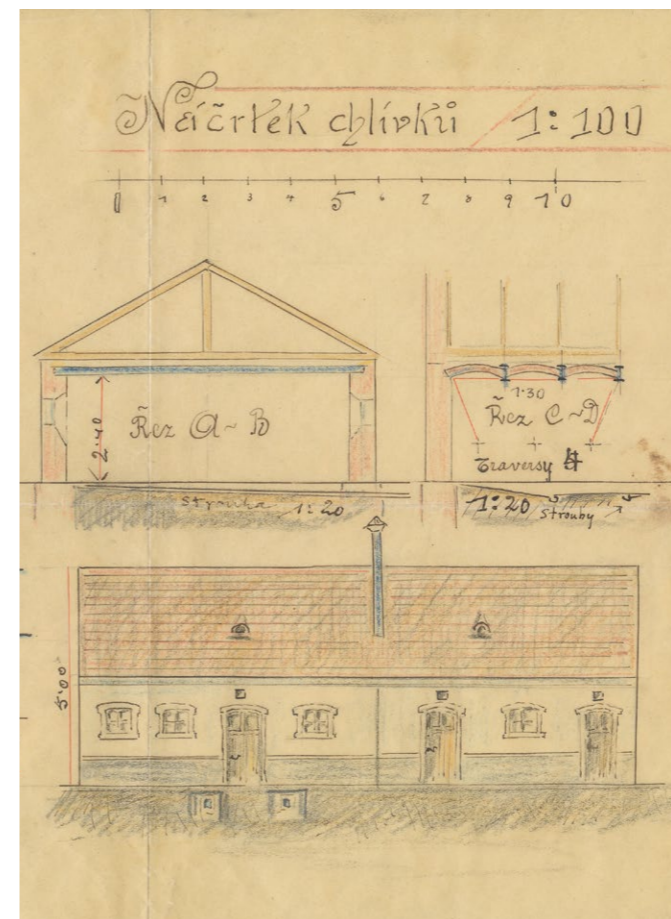 Náčrtek chlívků 1:100
0 1 2 3 4 5 6 7 8 9 10
2·40
Řez A~B
1·30
Řez C~D
Traversy
Strouha 1:20
1:20 Strouhy
5·00